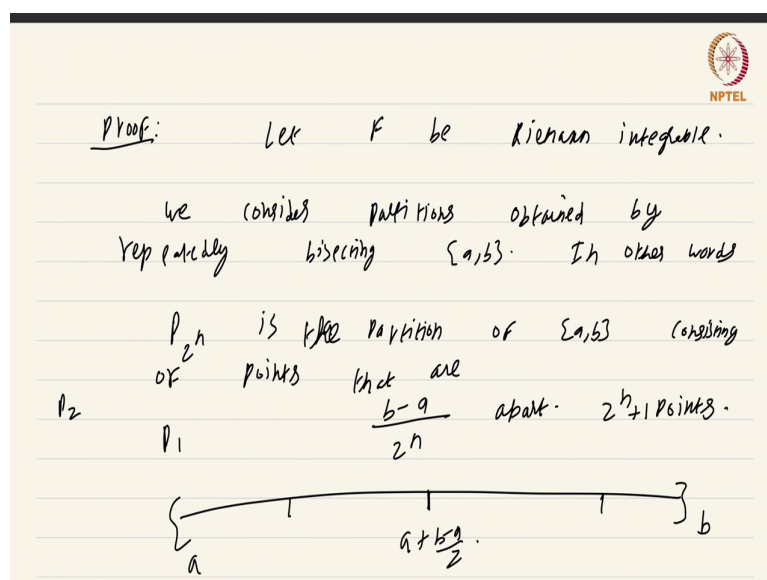 NPTEL
Proof: Let F be Riemann integrable.
We consider partitions obtained by
repeatedly bisecting [a,b]. In other words
P_{2^n} is the partition of [a,b] consisting
of points that are
P_2 \frac{b-a}{2^n} apart. 2^n+1 points.
P_1
[ ] b
a a + \frac{b-a}{2}.